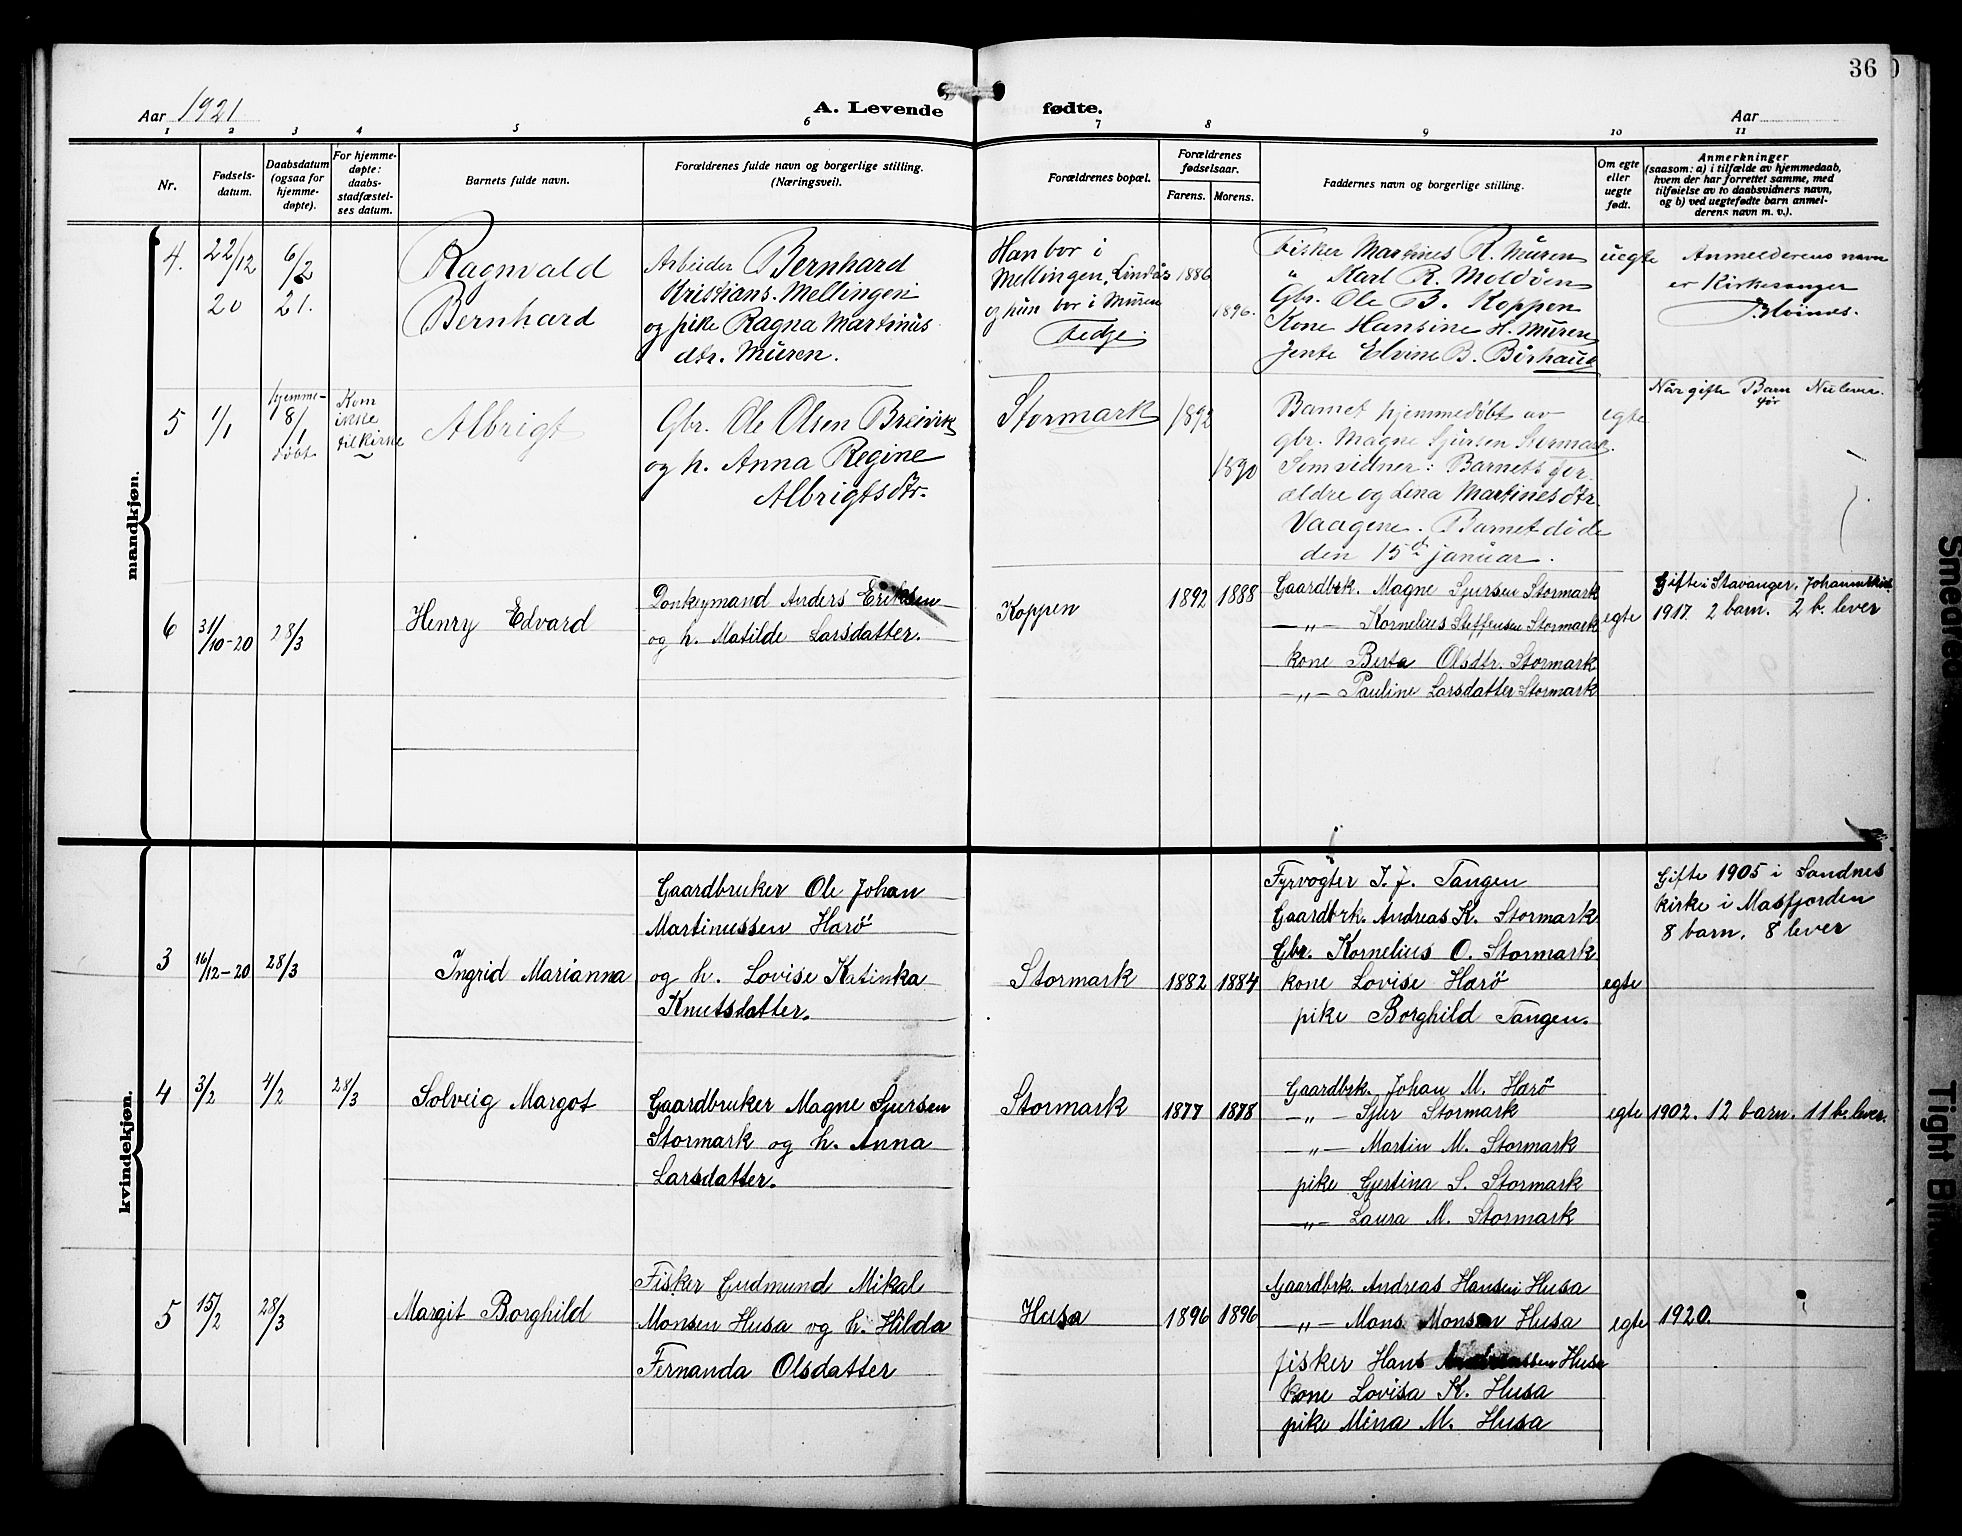 36
Aar 1921
A. Levende fødte.
Aar
1 2 3 4 5 6 7 8 9 10 11
Nr.
Fødsels-
datum.
Daabsdatum
(ogsaa for
hjemme-
døpte).
For hjemme-
døpte:
daabs-
stadfæstel-
ses datum.
Barnets fulde navn.
Forældrenes fulde navn og borgerlige stilling.
(Næringsvei).
Forældrenes bopæl.
Forældrenes
fødselsaar.
Farens. Morens.
Faddernes navn og borgerlige stilling.
Om egte
eller
uegte
født.
Anmerkninger
(saasom: a) i tilfælde av hjemmedaab,
hvem der har forrettet samme, med
tilføielse av to daabsvidners navn,
og b) ved uegtefødte barn anmel-
derens navn m. v.).
mandkjøn.
4.
22/12
20
6/2
21.
Ragnvald
Bernhard
Arbeider Bernhard
Kristians. Mellingen
og pike Ragna Martinus
dtr. Muren.
Han bor i
Mellingen, Lindås
og hun bor i Muren
Fedje
1886
1896.
Fisker Martines R. Muren
" Karl R. Moldöen
Gbr. Ole B. Koppen
Kone Hansine H. Muren
Jente Elvine B. Birhaug
uegte
Anmelderens navn
er Kirkesanger
5
1/1
hjemme-
8/1
døbt
Kom
ikke
til kirke
Albrigt
Gbr. Ole Olsen Breivik
og h. Anna Regine
Albrigtsdtr.
Stormark
1892
1890
Barnet hjemmedøbt av
gbr. Magne Sjursen Stormark.
Barnets for
ældre og Lina Martinesdtr
Vaagene. Barnet døde
den 15d januar.
egte
Når gifte Barn før Nulever.
6
31/10-20
28/3
Henry Edvard
Donkeymand Anders Eriksen
og h. Matilde Larsdatter.
Koppen
1892 1888
Gaardbrk. Magne Sjursen Stormark
—„— Kornelius Steffensen Stormark
kone Berta Olsdtr. Stormark
—„— Pauline Larsdatter Stormark
egte
Gifte i Stavanger, Johanneskirk.
1917. 2 barn. 2 b. lever
kvindekjøn.
3
16/12-20
28/3
Ingrid Marianna
Gaardbruker Ole Johan
Martinussen Harö
og h. Lovise Katinka
Knutsdatter.
Stormark
1882 1884
Fyrvogter I. J. Tangen
Gaardbrk. Andreas K. Stormark
Gbr. Kornelius O. Stormark
kone Lovise Harö
pike Borghild Tangen.
egte
Gifte 1905 i Sandnes
kirke i Masfjorden
8 barn, 8 lever
4
3/2
4/2
28/3
Solveig Margot
Gaardbruker Magne Sjursen
Stormark og h. Anna
Larsdatter.
Stormark
1877 1878
Gaardbrk. Johan M. Harö
—„— Sjur Stormark
—„— Martin M. Stormark
pike Gjertina S. Stormark
—„— Laura M. Stormark
egte
1902. 12 barn. 11 b. lever.
5
15/2
28/3
Margit Borghild
Fisker Gudmund Mikal
Monsen Husa og h. Hilda
Fernanda Olsdatter
Husa
1896 1896
Gaardbrk. Andreas Hansen Husa
—„— Mons Monsen Husa
fisker Hans Andreassen Husa
kone Lovisa K. Husa
pike Mina M. Husa
egte
1920.
Tight